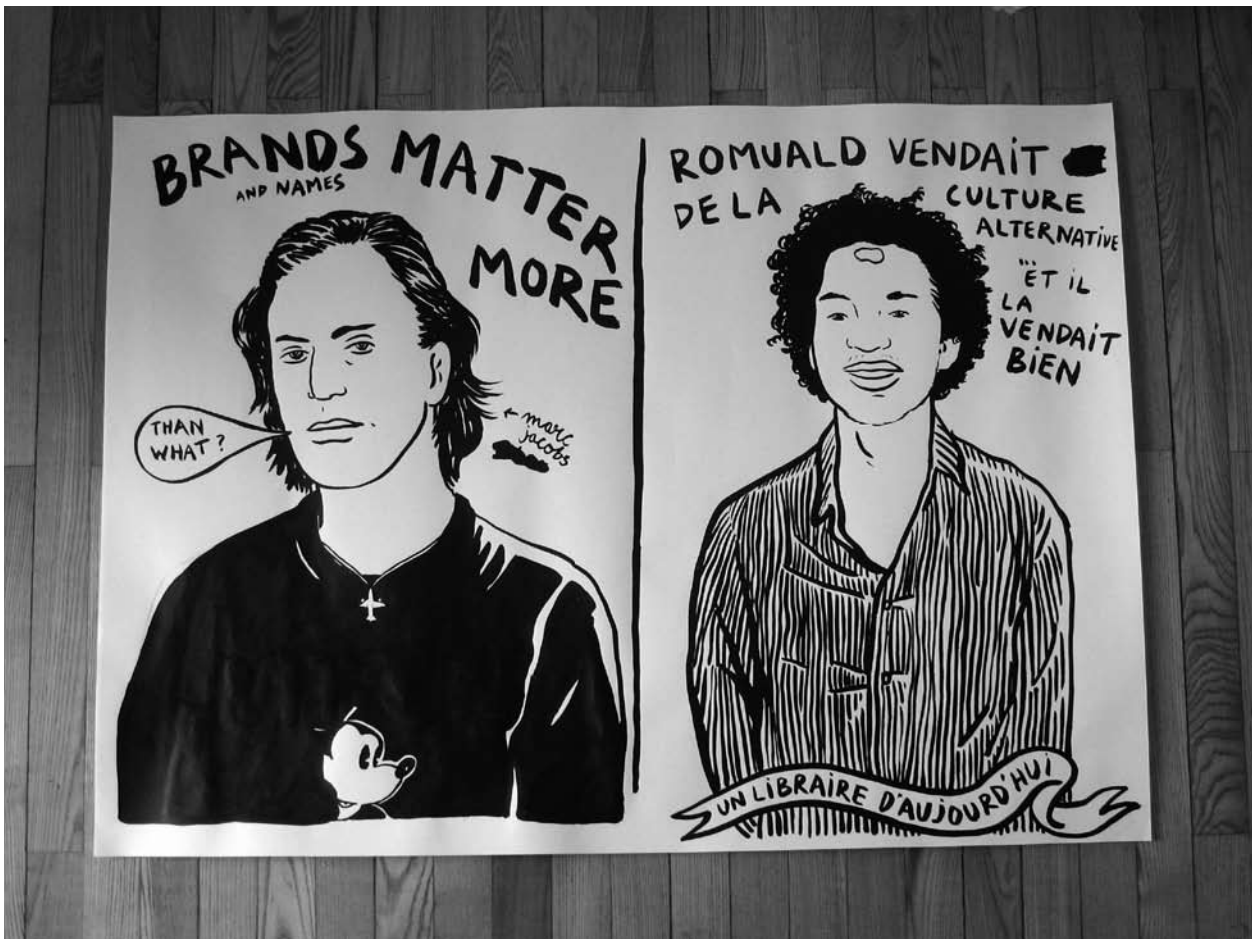 BRANDS MATTER
AND NAMES
MORE
THAN
WHAT?
← marc
jacobs
ROMUALD VENDAiT
DE LA CULTURE
ALTERNATIVE
"'ET iL
LA
VENDAiT
BiEN
UN LiBRAIRE D'AUJOURD'HUI